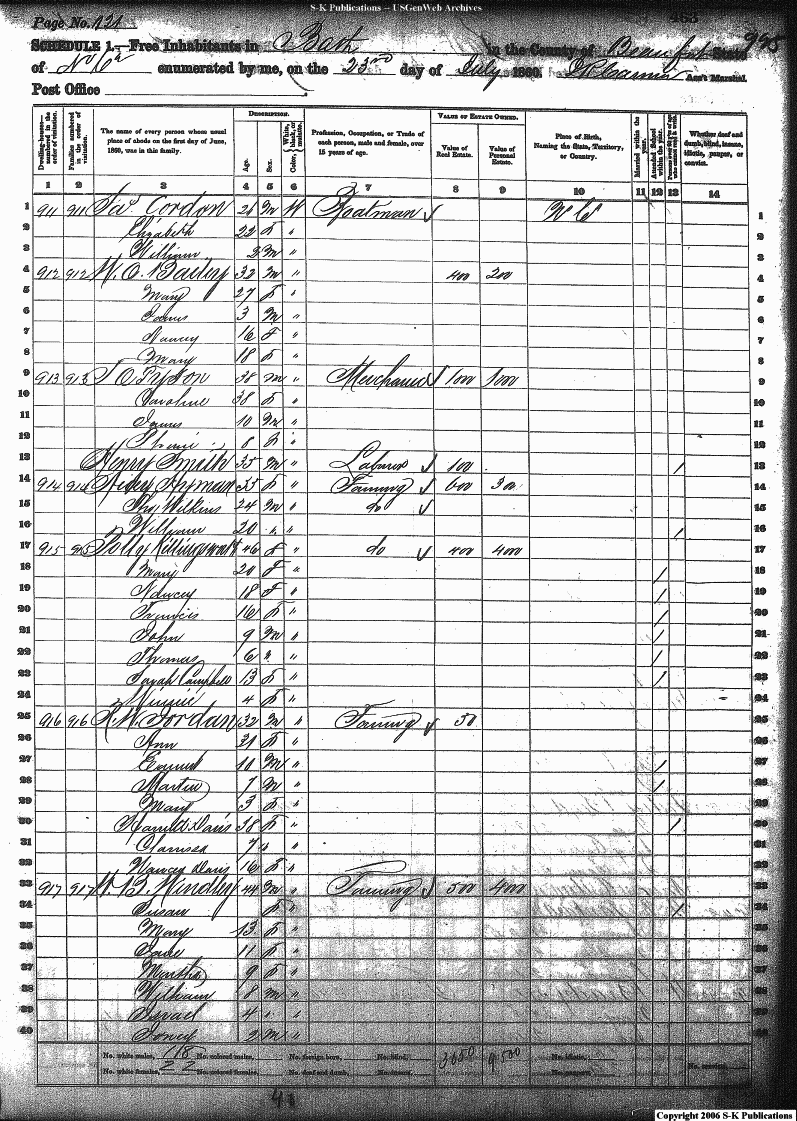 S-K Publications -- USGenWeb Archives
Page No. 131
SCHEDULE 1.—Free Inhabitants in Bath in the County of Beaufort State
of enumerated by me, on the 23rd day of July 1860. Ass't Marshal.
Post Office
Dwelling-houses—numbered in the order of visitation.
Families numbered in the order of visitation.
The name of every person whose usual place of abode on the first day of June, 1860, was in this family.
DESCRIPTION.
Age.
Sex.
Color, White, black, or mulatto.
Profession, Occupation, or Trade of each person, male and female, over 15 years of age.
VALUE OF ESTATE OWNED.
Value of Real Estate.
Value of Personal Estate.
Place of Birth, Naming the State, Territory, or Country.
Married within the year.
Attended School within the year.
Persons over 20 y'rs of age who cannot read & write.
Whether deaf and dumb, blind, insane, idiotic, pauper, or convict.
1 2 3 4 5 6 7 8 9 10 11 12 13 14
1 911 911 Cordon 26 M W Boatman N C 1
2 Elizabeth 22 F " 2
3 William M " 3
4 912 912 W. O. Bailey 32 M " 400 200 4
5 Mary 27 F " 5
6 James 3 M " 6
7 Nancy 16 F " 7
8 Mary 18 F " 8
9 913 913 38 M " Merchant 1000 1000 9
10 Caroline 38 F " 10
11 James 10 M " 11
12 8 F " 12
13 Henry Smith 35 M " Laborer 100 / 13
14 914 914 Hyman 55 F " Farming 600 300 14
15 Thos Wilkins 24 M " do 15
16 William 20 " " / 16
17 915 915 Polly Killingsworth 46 F " do 400 400 17
18 Mary 20 F " / 18
19 Nancy 18 F " / 19
20 Francis 16 F " / 20
21 John 9 M " / 21
22 Thomas 6 " " / 22
23 Sarah Campbell 13 F " / 23
24 Winnie 4 F " 24
25 916 916 Jordan 32 M " Farming 50 25
26 Ann 31 F " 26
27 10 M " / 27
28 Martin 7 M " / 28
29 Mary 3 F " 29
30 Harriett Davis 38 F " / 30
31 Clarissa 7 " " 31
32 Nancy Davis 16 F " 32
33 917 917 44 M " Farming 500 400 33
34 Susan F " / 34
35 Mary 13 F " 35
36 Jane 11 F " 36
37 Martha 9 F " 37
38 William 8 M " 38
39 Israel 4 " " 39
40 2 M " 40
No. white males, 18 No. colored males, No. foreign born, No. blind, 3650 9500 No. idiotic,
No. white females, 22 No. colored females, No. deaf and dumb, No. insane, No. paupers, No. convicts,
41
Copyright 2006 S-K Publications